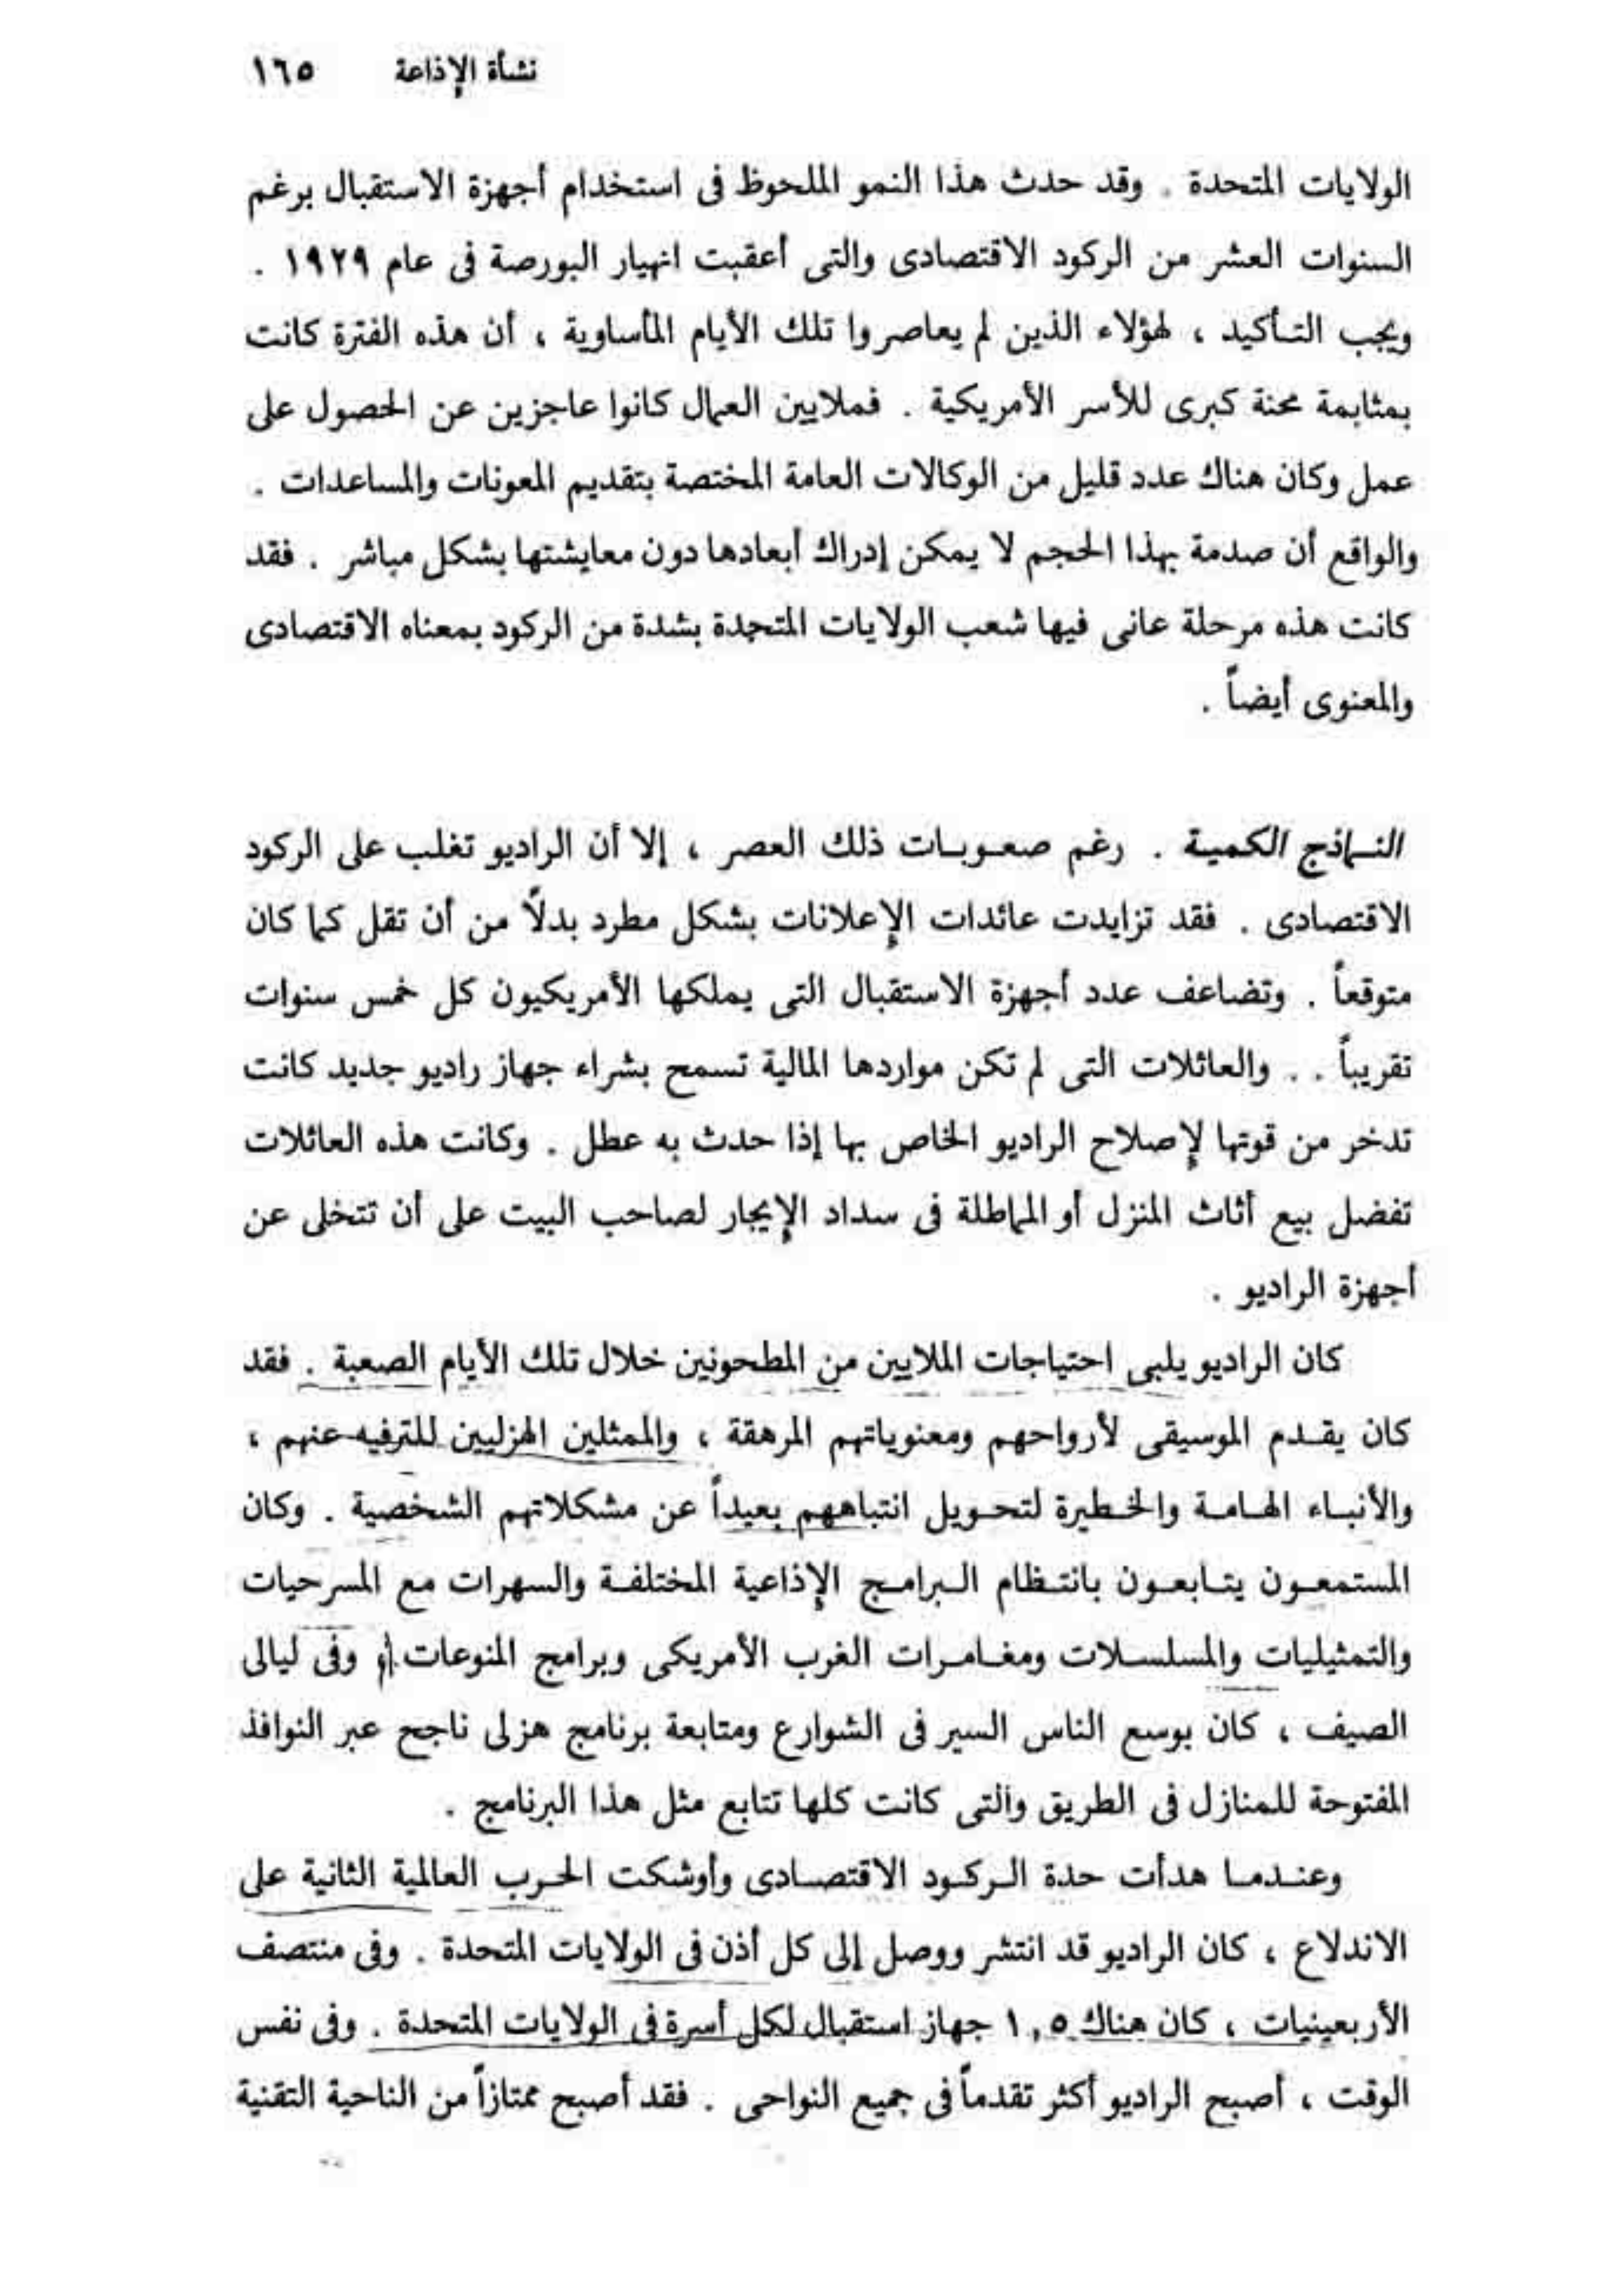 نشأة الإذاعة ١٦٥
الولايات المتحدة . وقد حدث هذا النمو الملحوظ فى استخدام أجهزة الاستقبال برغم
السنوات العشر من الركود الاقتصادى والتى أعقبت انهيار البورصة فى عام ١٩٢٩ .
ويجب التأكيد ، لهؤلاء الذين لم يعاصروا تلك الأيام المأساوية ، أن هذه الفترة كانت
بمثابمة محنة كبرى للأسر الأمريكية . فملايين العمال كانوا عاجزين عن الحصول على
عمل وكان هناك عدد قليل من الوكالات العامة المختصة بتقديم المعونات والمساعدات .
والواقع أن صدمة بهذا الحجم لا يمكن إدراك أبعادها دون معايشتها بشكل مباشر . فقد
كانت هذه مرحلة عانى فيها شعب الولايات المتحدة بشدة من الركود بمعناه الاقتصادى
والمعنوى أيضاً .
النماذج الكمية . رغم صعوبات ذلك العصر ، إلا أن الراديو تغلب على الركود
الاقتصادى . فقد تزايدت عائدات الإعلانات بشكل مطرد بدلاً من أن تقل كما كان
متوقعاً . وتضاعف عدد أجهزة الاستقبال التى يملكها الأمريكيون كل خمس سنوات
تقريباً . . والعائلات التى لم تكن مواردها المالية تسمح بشراء جهاز راديو جديد كانت
تدخر من قوتها لإصلاح الراديو الخاص بها إذا حدث به عطل . وكانت هذه العائلات
تفضل بيع أثاث المنزل أو المماطلة فى سداد الإيجار لصاحب البيت على أن تتخلى عن
أجهزة الراديو .
كان الراديو يلبى احتياجات الملايين من المطحونين خلال تلك الأيام الصعبة . فقد
كان يقدم الموسيقى لأرواحهم ومعنوياتهم المرهقة ، والممثلين الهزليين للترفيه عنهم ،
والأنباء الهامة والخطيرة لتحويل انتباههم بعيداً عن مشكلاتهم الشخصية . وكان
المستمعون يتابعون بانتظام البرامج الإذاعية المختلفة والسهرات مع المسرحيات
والتمثيليات والمسلسلات ومغامرات الغرب الأمريكى وبرامج المنوعات . وفى ليالى
الصيف ، كان بوسع الناس السير فى الشوارع ومتابعة برنامج هزلى ناجح عبر النوافذ
المفتوحة للمنازل فى الطريق والتى كانت كلها تتابع مثل هذا البرنامج .
وعندما هدأت حدة الركود الاقتصادى وأوشكت الحرب العالمية الثانية على
الاندلاع ، كان الراديو قد انتشر ووصل إلى كل أذن فى الولايات المتحدة . وفى منتصف
الأربعينيات ، كان هناك ١,٥ جهاز استقبال لكل أسرة فى الولايات المتحدة . وفى نفس
الوقت ، أصبح الراديو أكثر تقدماً فى جميع النواحى . فقد أصبح ممتازاً من الناحية التقنية